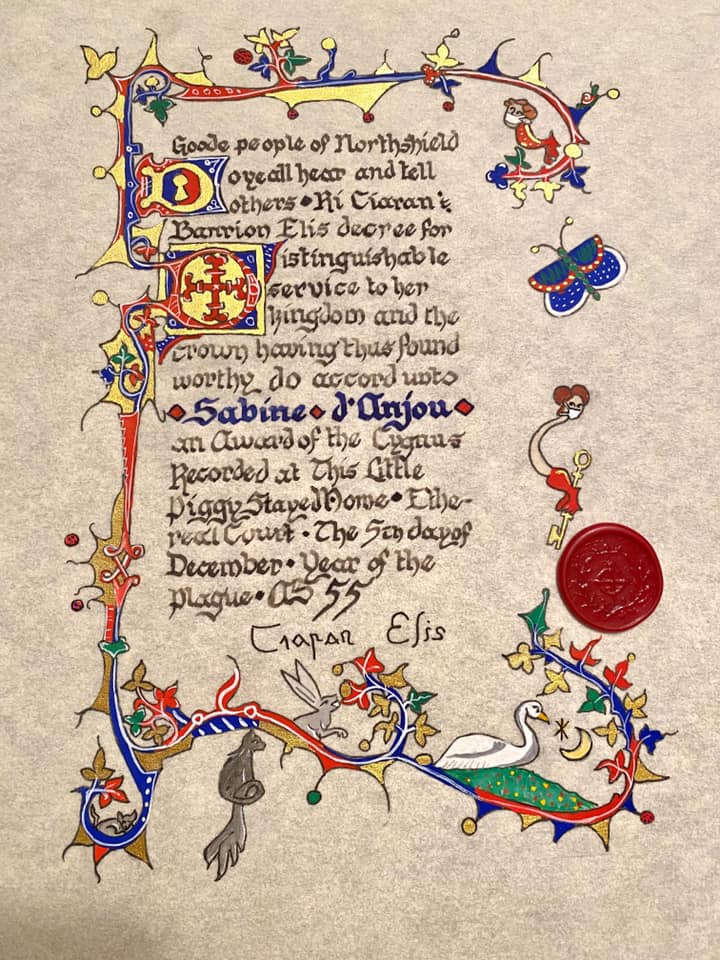 Goode people of Northshield
Do ye all hear and tell
others • Ri Ciaran &
Banrion Elis decree for
Distinguishable
service to her
kingdom and the
crown having thus found
worthy do accord unto
Sabine d'Anjou
an Award of the Cygnus
Recorded at This Little
Piggy Stayed Home • Ethe-
real Court • The 5th day of
December • Year of the
Plague • AS 55
Ciaran Elis